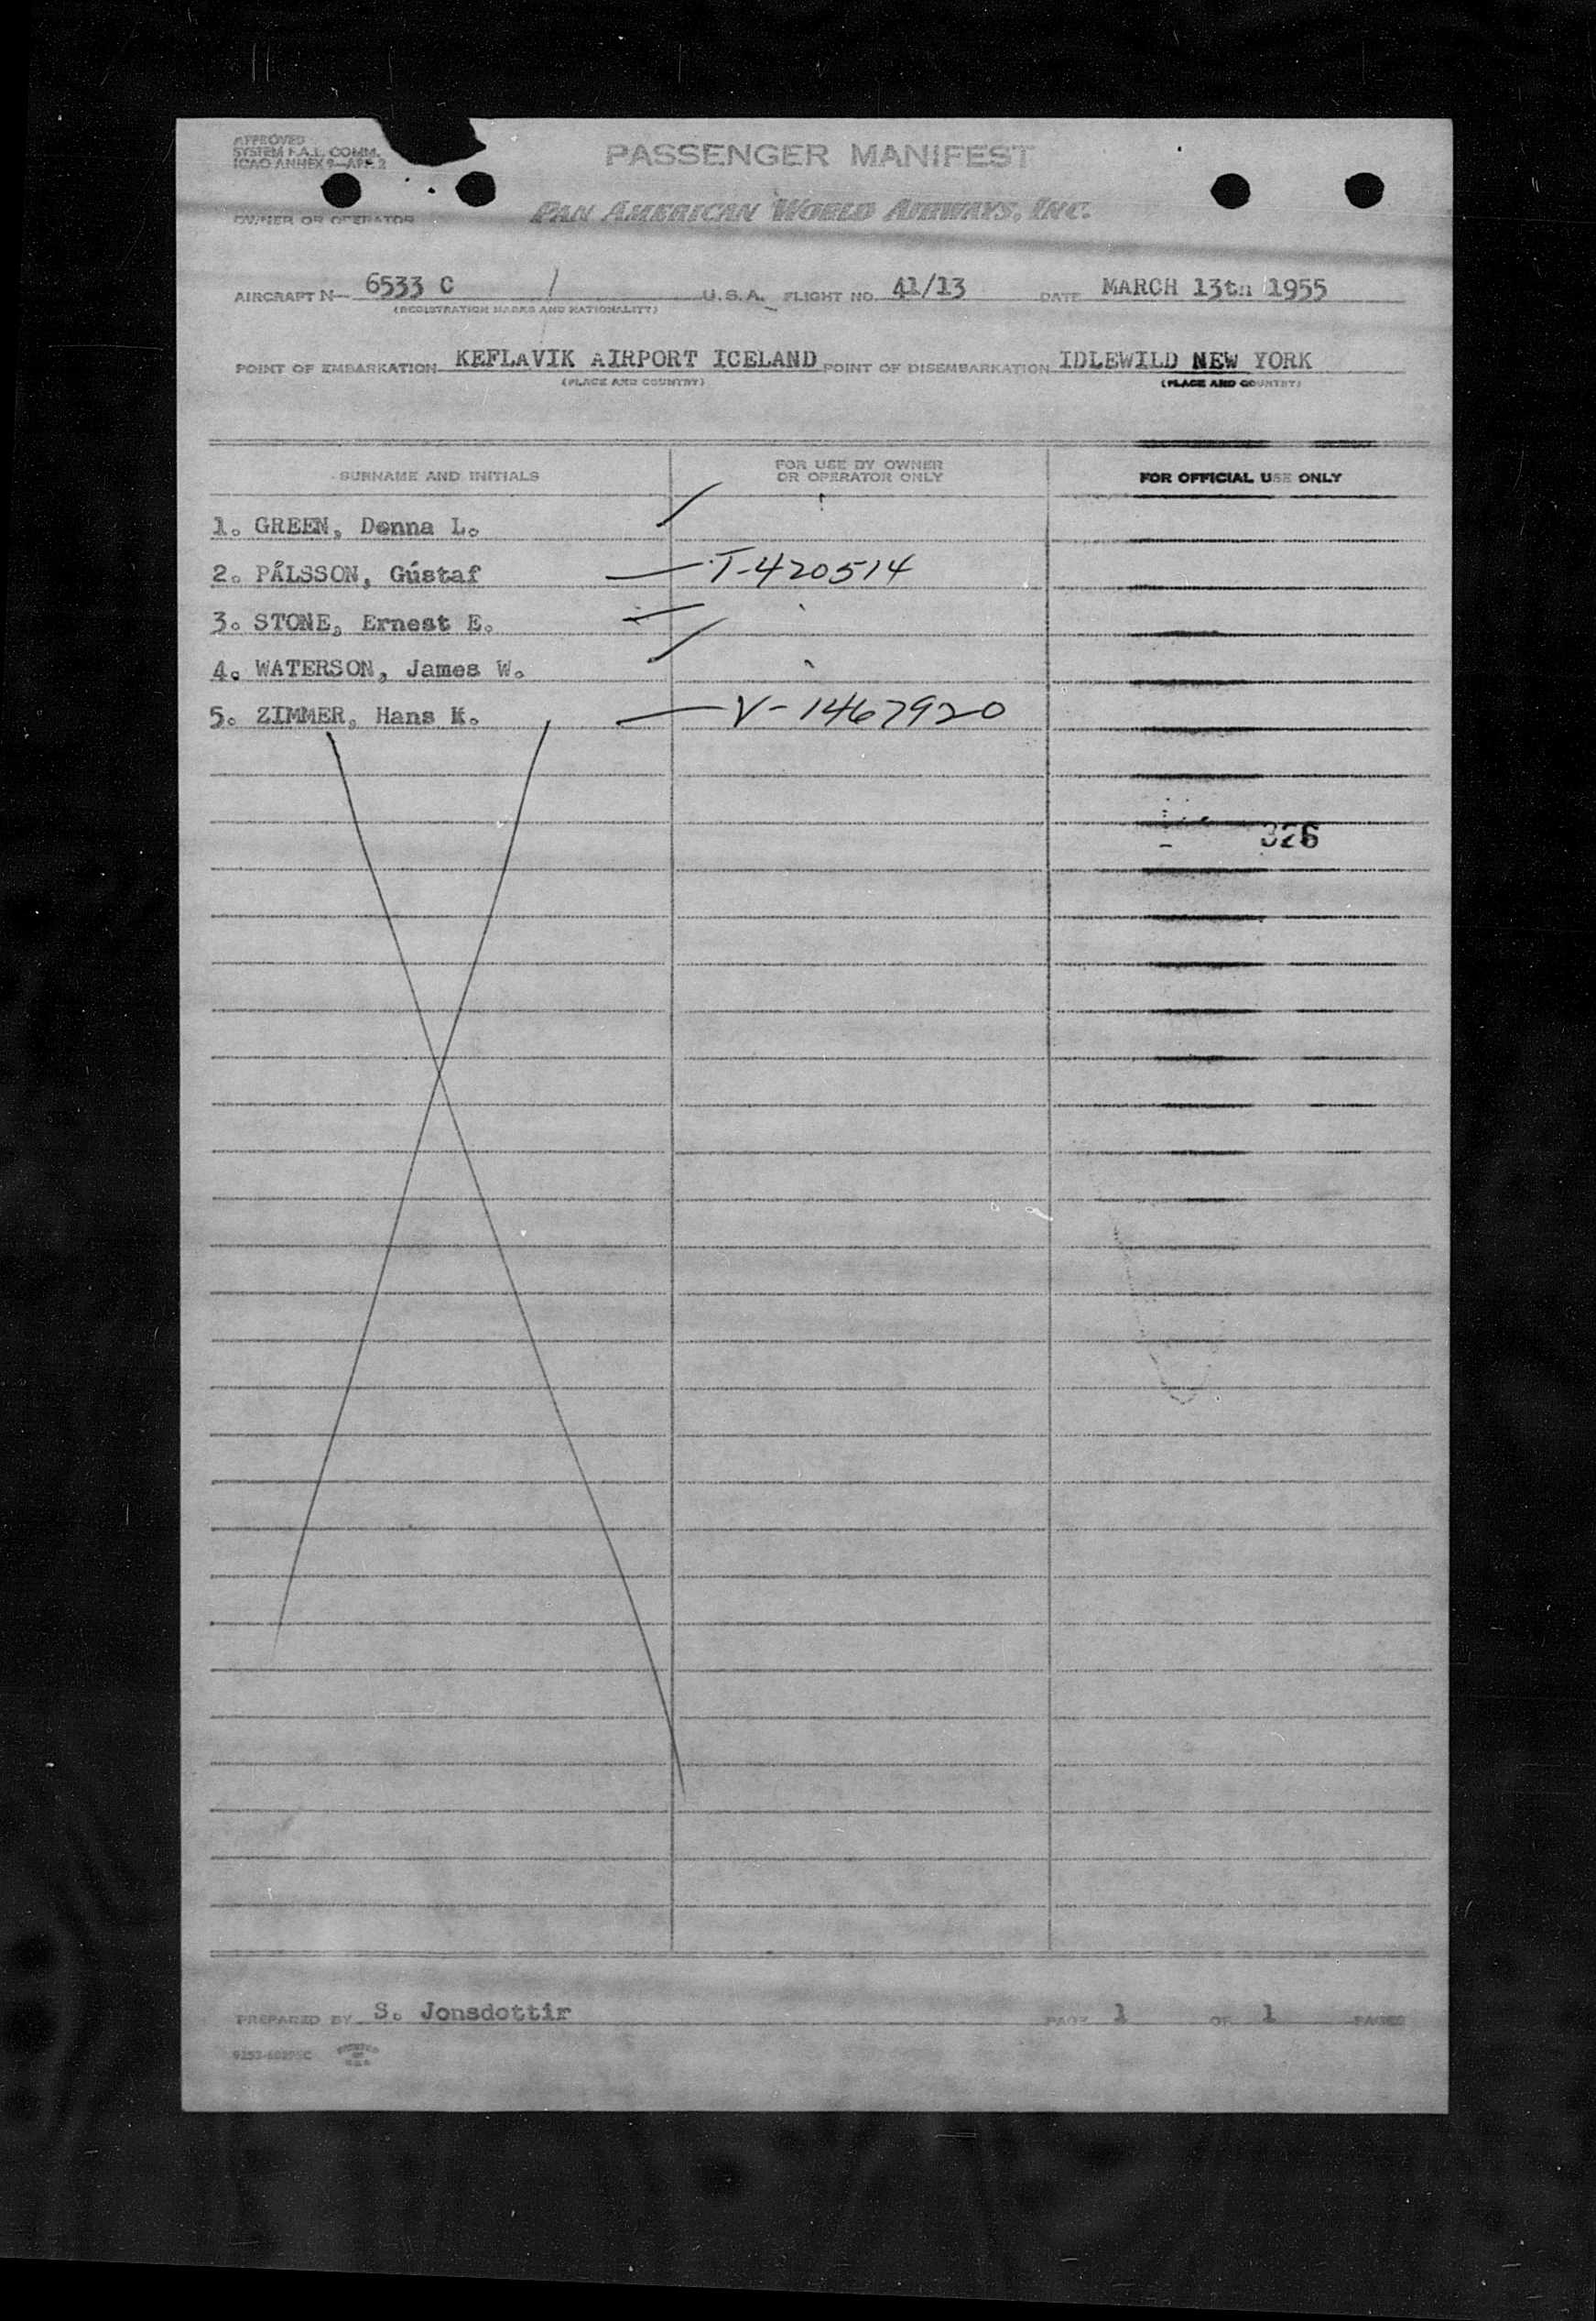 APPROVED
SYSTEM F.A.L. COMM.
ICAO ANNEX 9—APP. 2
PASSENGER MANIFEST
OWNER OR OPERATOR PAN AMERICAN WORLD AIRWAYS, INC.
AIRCRAFT N— 6533 C / U.S.A. FLIGHT NO. 41/13 DATE MARCH 13th 1955
(REGISTRATION MARKS AND NATIONALITY)
POINT OF EMBARKATION KEFLAVIK AIRPORT ICELAND POINT OF DISEMBARKATION IDLEWILD NEW YORK
(PLACE AND COUNTRY) (PLACE AND COUNTRY)
SURNAME AND INITIALS FOR USE BY OWNER OR OPERATOR ONLY FOR OFFICIAL USE ONLY
1. GREEN, Donna L.
2. PÁLSSON, Gústaf T-420514
3. STONE, Ernest E.
4. WATERSON, James W.
5. ZIMMER, Hans K. V-1467920
326
PREPARED BY S. Jonsdottir PAGE 1 OF 1 PAGES
PRINTED
IN
U.S.A.